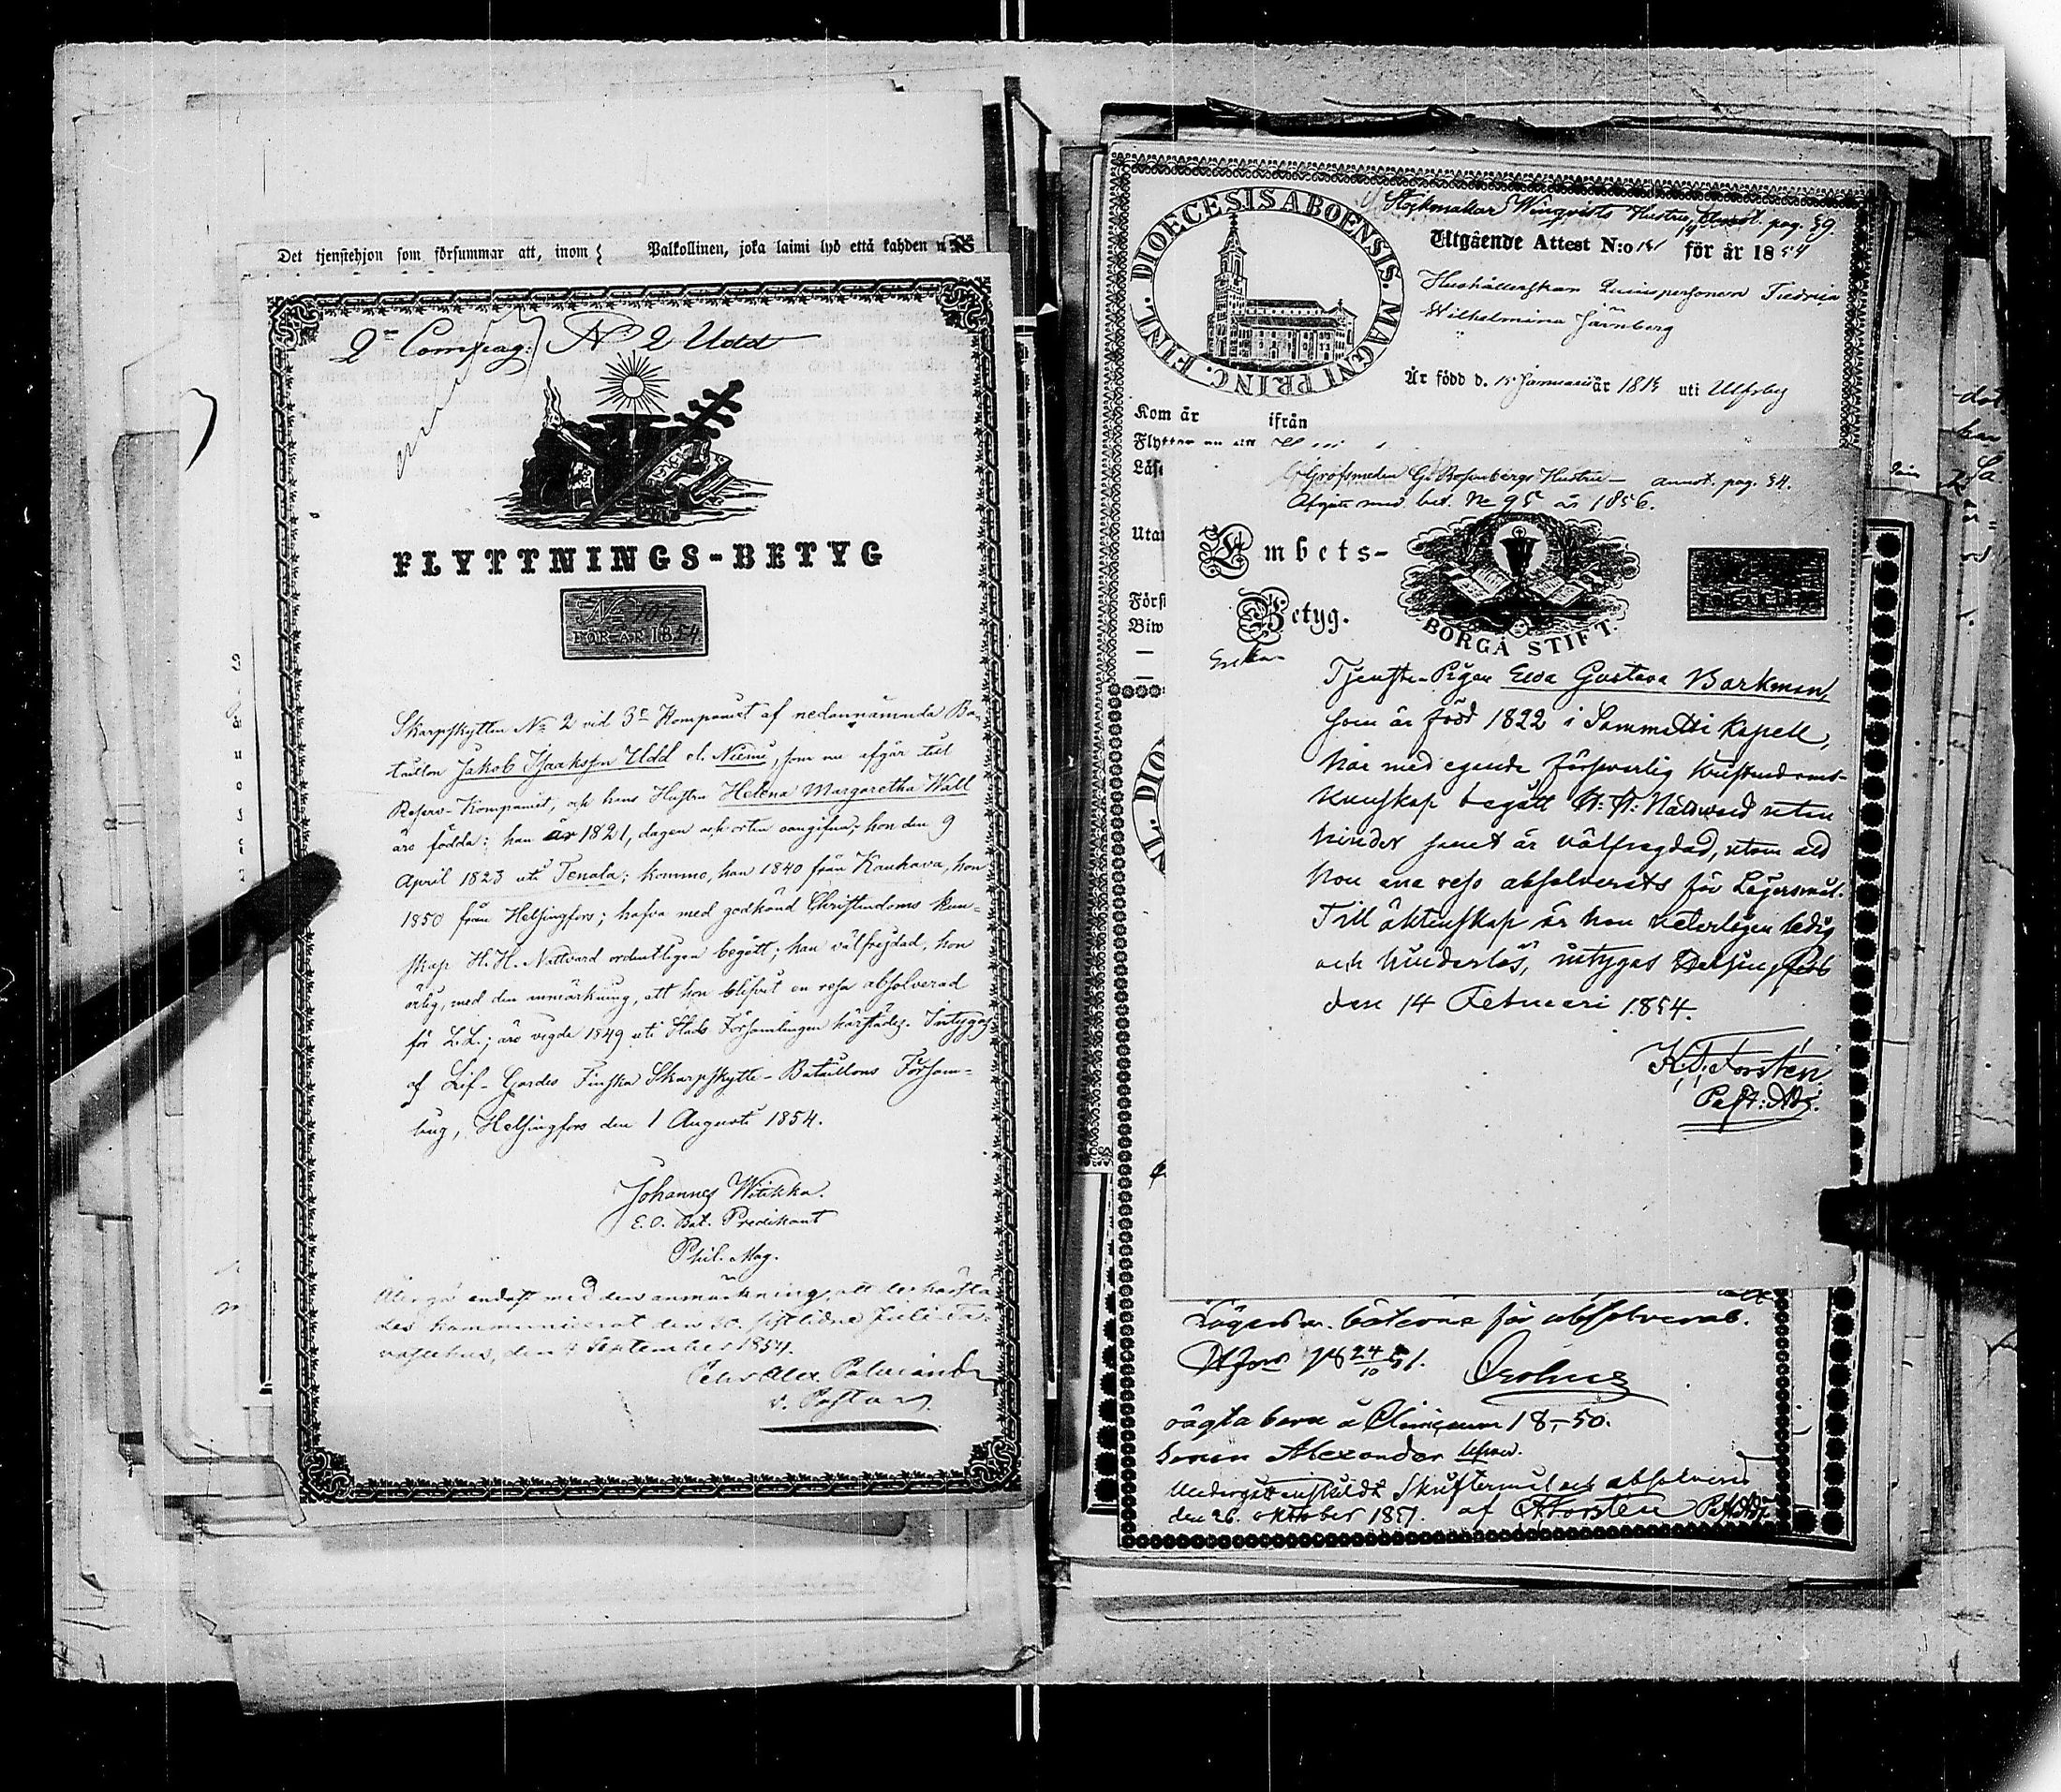 Det tjenstehjon som försummar att, inom
Palkollinen, joka laimi lyö että kahden
2:e Compag: No 2 Udd
FLYTTNINGS-BETYG
No 107
FÖR ÅR 1854
Skarpskytten No 2 vid 3:e Kompaniet af nedannämnda Ba-
taillon Jakob Isaaksson Udd el. Niemi, som nu afgår till
Reserv-Kompaniet, och hans Hustru Helena Margaretha Wall
äro födda: han år 1821, dagen och orten oangifna; hon den 9
April 1823 uti Tenala; komne, han 1840 från Kauhava, hon
1850 från Helsingfors; hafva med godkänd Christendoms kun-
skap H.H. Nattvard ordentligen begått; han välfrejdad, hon
ärlig, med den anmärkning, att hon blifvit en resa absolverad
för L.L.; äro vigde 1849 uti Stads Församlingen härstädes. Intygas
af Lif-Gardes Finska Skarpskytte-Bataillons Försam-
ling, Helsingfors den 1 Augusti 1854.
Johannes Witikka.
E.O. Bat. Predikant
Phil. Mag.
Återgå endast med den anmärkning, att de härstä
des kommunicerat den 30. sistlidne Juli. Ta-
vastehus, den 4 September 1854.
v. Pastor
DIOECESIS ABOENSIS. MAGNI PRINC. FINL.
Stolkmakar Winqvists Hustru, annot. pag. 39.
Utgående Attest N:o 181 för år 1854
Hushållerskan Qvinspersonen Fredrica
Wilhelmina Järnberg
Är född d. 15 Januarii år 1815 uti Ulfsby
Kom år ifrån
Grofsmeden G. Rosenbergs Hustru - annot. pag. 34.
Afgått med bet. No 95 år 1856.
Embets-
Betyg.
BORGÅ STIFT.
Enka
Tjenste-Pigan Ewa Gustava Barkman,
som är född 1822 i Sammatti Kapell,
har med egande, försvarlig Kristendoms-
kunskap begått H: H: Nattvard utan
hinder samt är välfrejdad, utom att
hon ena resa absolverats för Lägersmål.
Till äktenskap är hon veterligen ledig
och hinderlös, intygas Helsingfors
den 14 Februari 1854.
K. F. Forstén
Past: Adj.
Lägersm. böterne för absolverad.
H:fors 24/10 51.
oägta barn å Clinicum 18,-50.
sonen Alexander
Undergått enskildt Skriftermål och absolverad
den 26. oktober 1851. af KForstén Past. Adj.